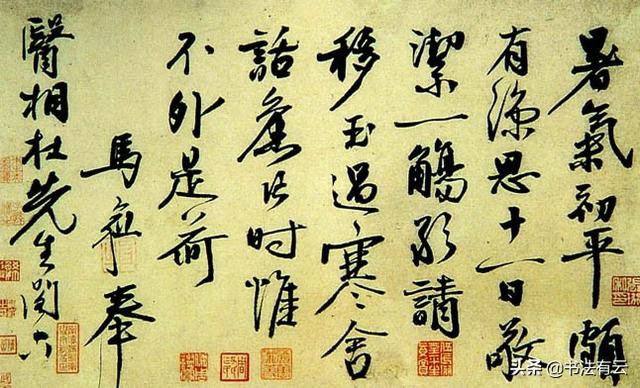 暑氣初平頗
有涼思十一日敬
潔一觴敢請
移玉過寒舍
話舊時惟
不外是荷
馬愈奉
醫相杜先生閣下
头条 @书法有云